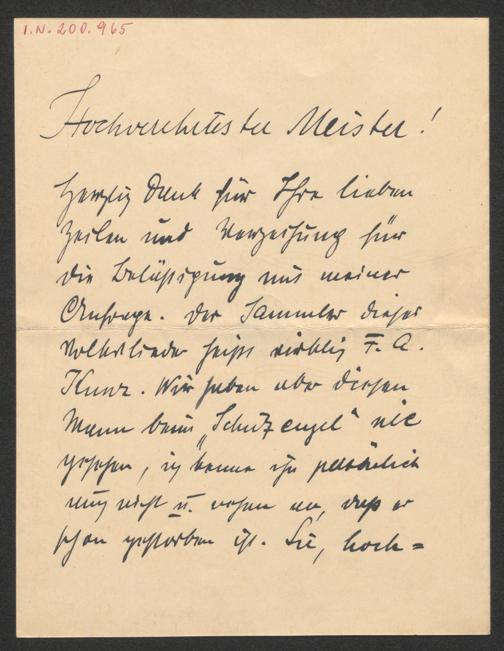 I.N. 200.965
Hochverehrtester Meister!
Herzlig Dank für Ihre lieben
Zeilen und Verzeihung für
die Belästigung mit meiner
Anfrage. Der Sammler dieser
Volkslieder heißt wirklig F. A.
Kunz. Wir haben aber diesen
Mann beim „Schutzengel" nie
gesehen, ig kenne ihn persönlich
auch nicht u. nehme an, daß er
schon gestorben ist. Sie, hoch=